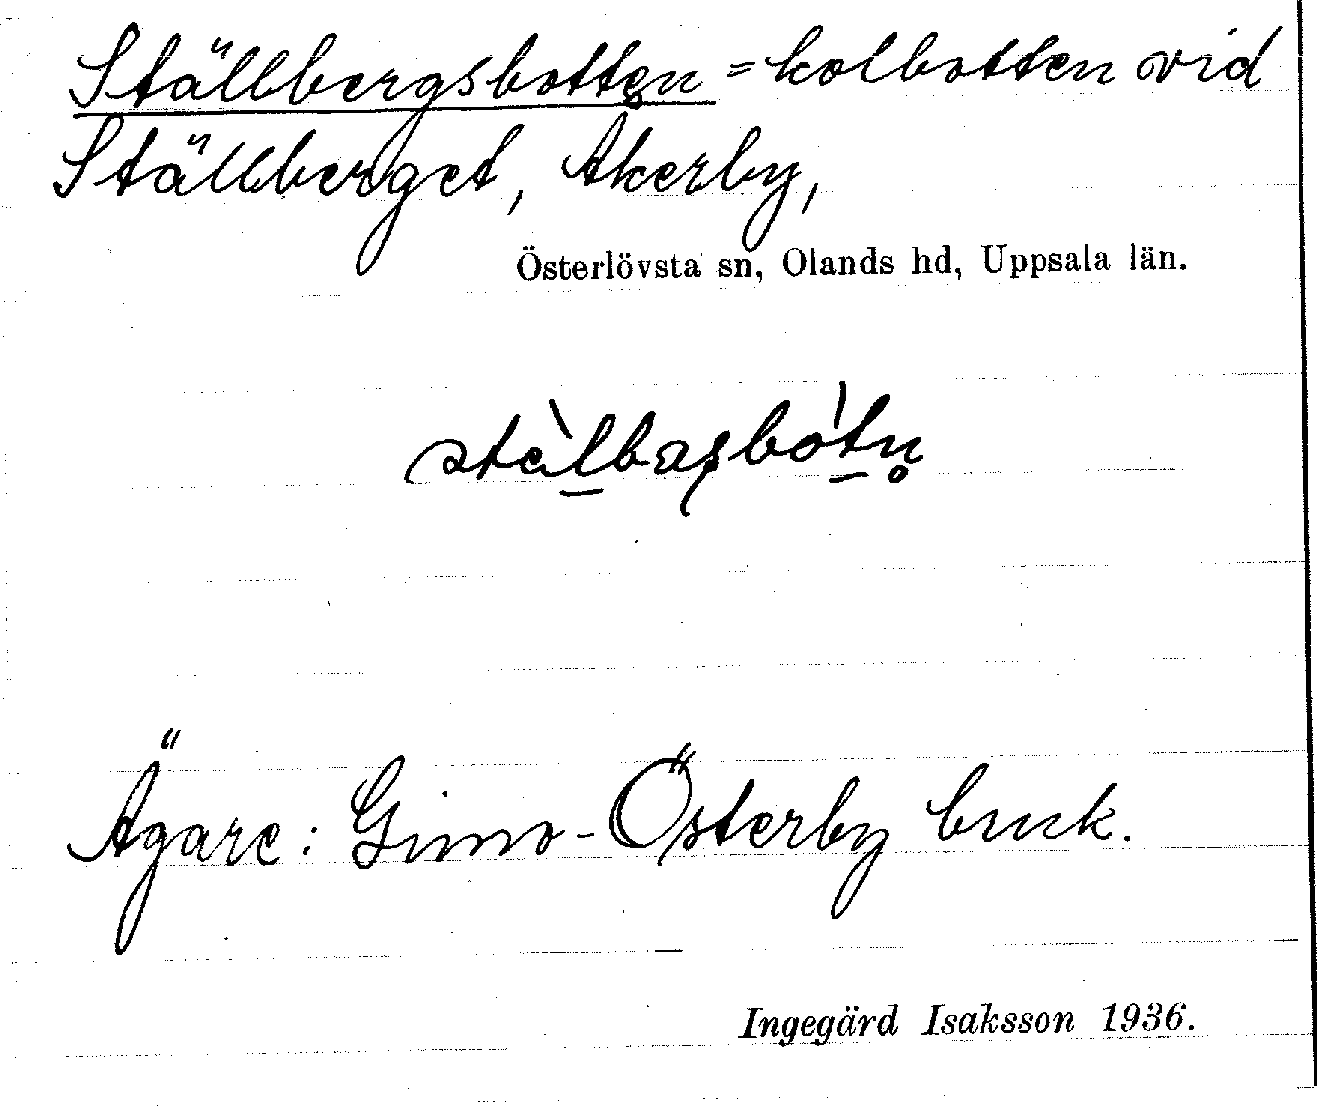 Ställbergsbotten = kolbotten vid
Ställberget, Åkerby,
Österlövsta sn, Olands hd, Uppsala län.
Ägare: Gimo-Österby bruk.
Ingegärd Isaksson 1936.